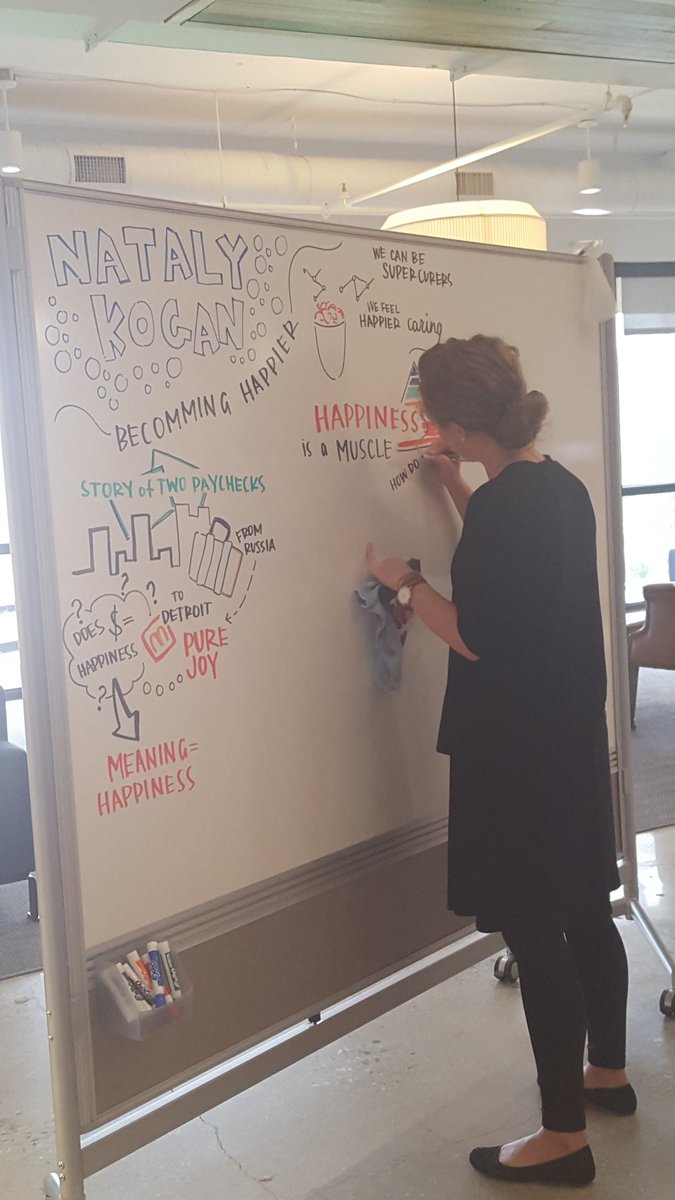 NATALY
KOGAN
BECOMMING HAPPIER
WE CAN BE
SUPERCURERS
WE FEEL
HAPPIER caring
HAPPINESS
is a MUSCLE
HOW DO
STORY of TWO PAYCHECKS
FROM
RUSSIA
TO
DETROIT
PURE
JOY
? ? ?
DOES $=
HAPPINESS
?
MEANING=
HAPPINESS